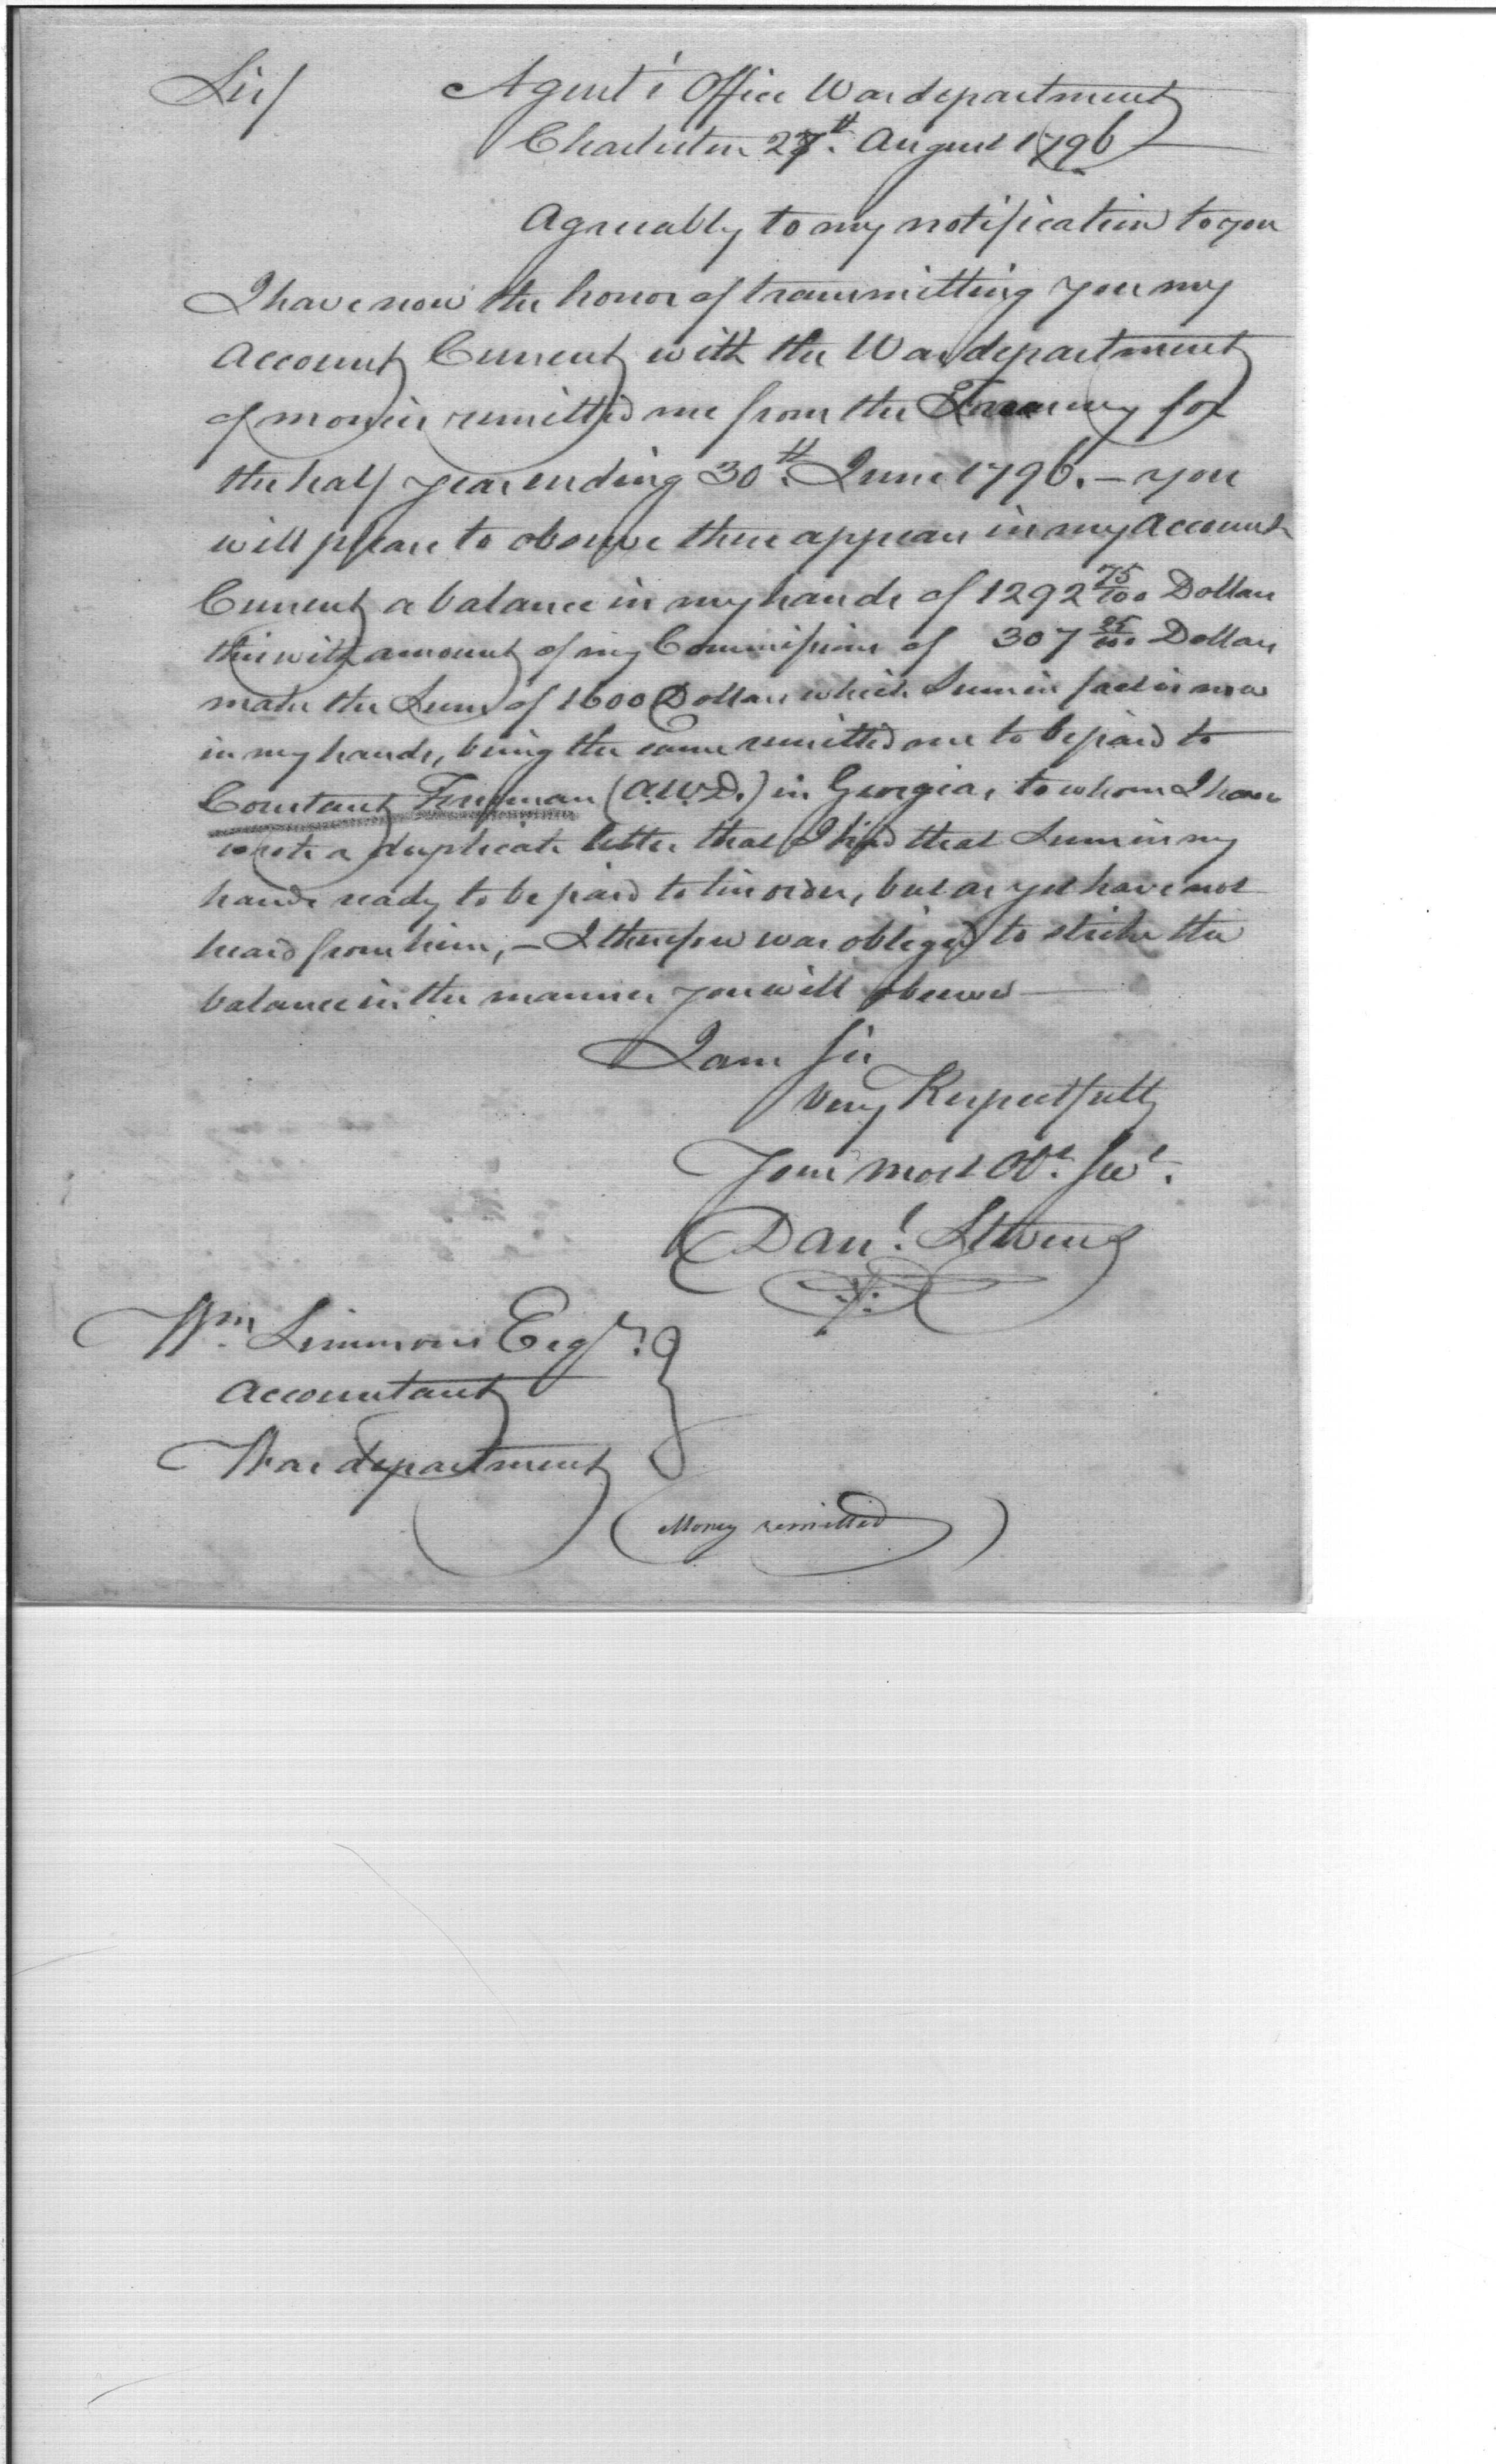 Sir/ Agent's Office War department
Charleston 27th. August 1796
Agreeably to my notification to you
I have now the honor of transmitting you my
Account Current with the War department
of monies remitted me from the Treasury for
the half year ending 30th. June 1796. – you
will please to observe there appears in my Account
Current a balance in my hands of 1292 75/100 Dollars
this with amount of my Commissions of 307 25/100 Dollars
make the Sum of 1600 Dollars which Sum in fact is now
in my hands, being the same remitted me to be paid to
Constant Freeman (A.W.D.) in Georgia, to whom I have
wrote a duplicate letter that I had that Sum in my
hands ready to be paid to his order, but as yet have not
heard from him, – I therefore was obliged to strike the
balance in the manner you will observe
I am Sir
Very Respectfully
Your most Obt. Sevt.
Danl. Stevens
Wm. Simmons Esqr.
Accountant
War department
(Money remitted)